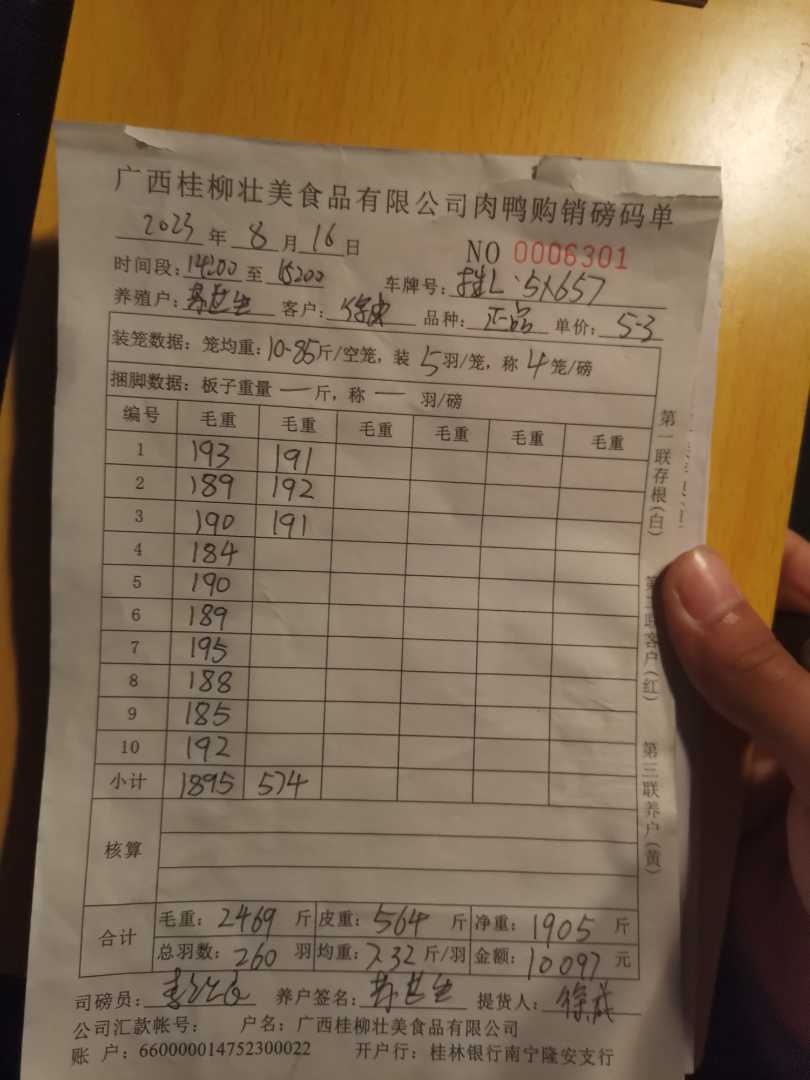 广西桂柳壮美食品有限公司肉鸭购销磅码单
2023年8月16日 NO 0006301
时间段：14200至15200 车牌号：桂L·5X657
养殖户： 客户： 品种：正品 单价：5-3
装笼数据：笼均重：10-85斤/空笼，装5羽/笼，称4笼/磅
捆脚数据：板子重量—斤，称— 羽/磅
编号 毛重 毛重 毛重 毛重 毛重 毛重
1 193 191
2 189 192
3 190 191
4 184
5 190
6 189
7 195
8 188
9 185
10 192
小计 1895 574
核算
合计 毛重：2469斤 皮重：564斤 净重：1905斤
总羽数：260羽 均重：7.32斤/羽 金额：10097元
司磅员： 养户签名： 提货人：徐成
公司汇款帐号： 户名：广西桂柳壮美食品有限公司
账 户：660000014752300022 开户行：桂林银行南宁隆安支行
第一联存根（白）
第二联客户（红）
第三联养户（黄）